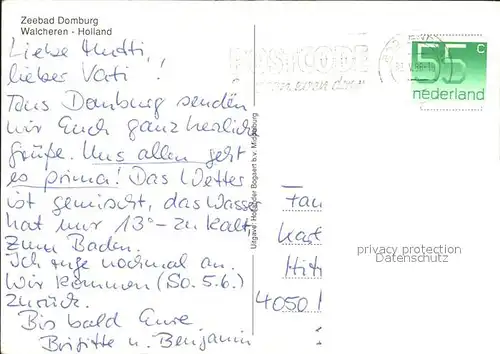 Zeebad Domburg
Walcheren - Holland
Liebe Mutti,
lieber Vati!
Aus Domburg senden
wir Euch ganz herzliche
Grüße. Uns allen geht
es prima! Das Wetter
ist gemischt, das Wasser
hat nur 13° - zu kalt
zum Baden.
Ich rufe nochmal an.
Wir kommen (So. 5.6.)
zurück.
Bis bald Eure
Brigitte u. Benjamin
POSTCODE
55 c
nederland
Fam
Kast
4050
privacy protection
Datenschutz